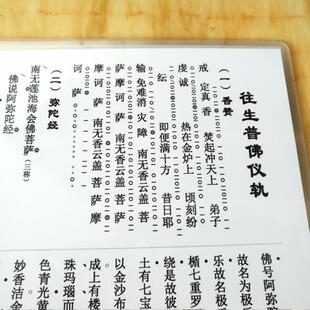 往生普佛仪轨
（一）香赞
戒定真香 焚起冲天上 弟子
虔诚 热在金炉上 顷刻纷
纭 即便满十方 昔日耶
输 免难消灾障 南无香云盖菩
萨摩诃萨 南无香云盖菩萨摩
诃萨 南无香云盖菩萨摩
（二）弥陀经
南无莲池海会佛菩萨（三称）
佛说阿弥陀经
佛号阿弥陀
故名为极
乐故名极
楯七重罗
绕是故彼
土有七宝
以金沙布
成上有楼
珠玛瑙而
色青光黄
妙香洁